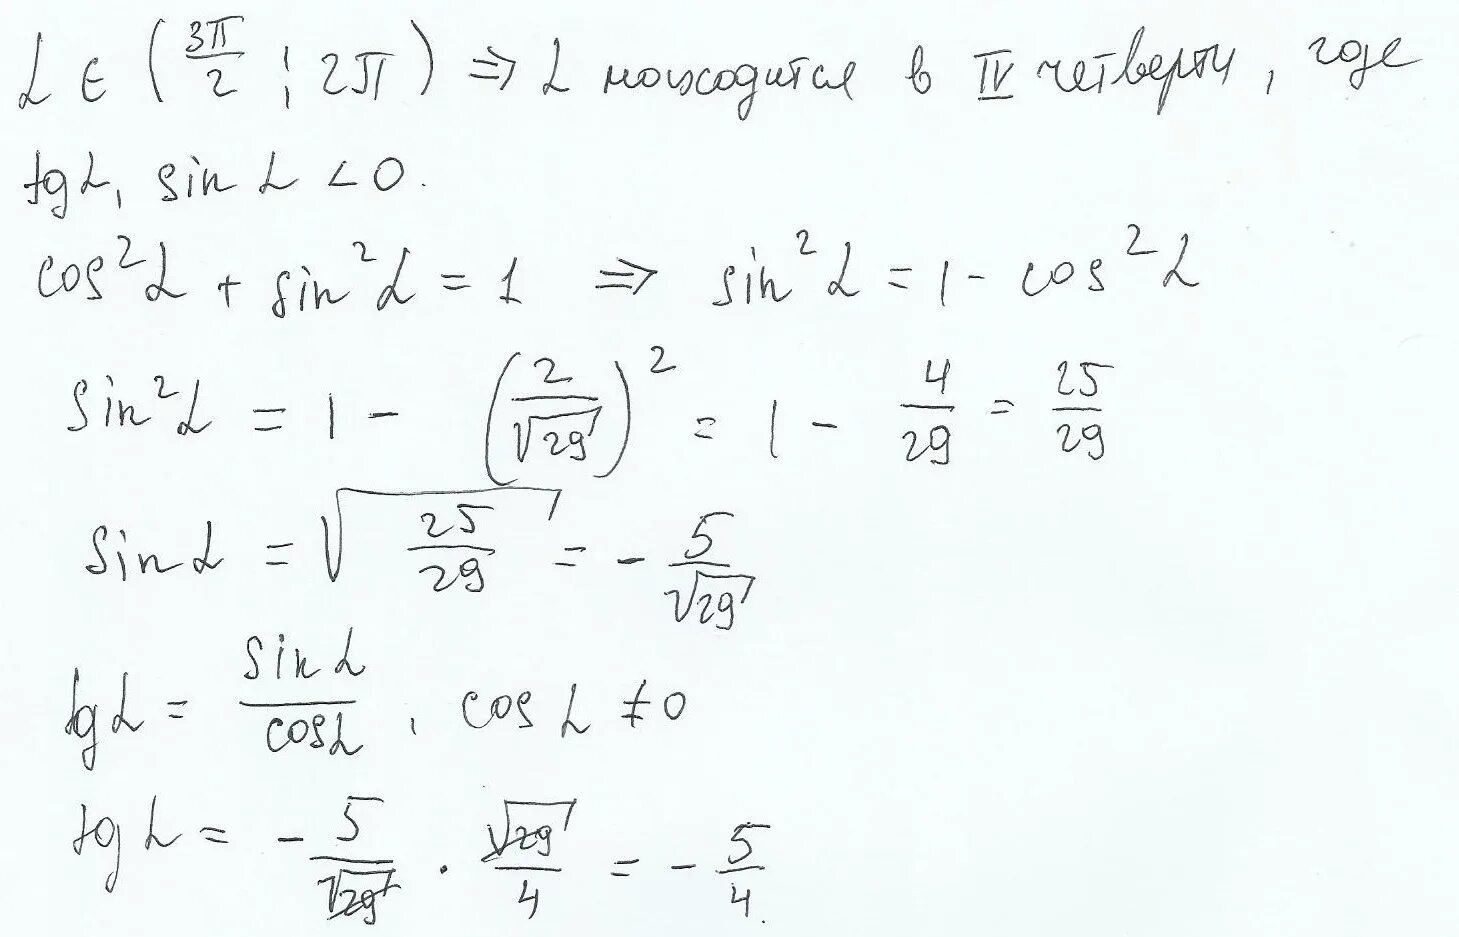 α ∈ (3π/2 ; 2π) ⇒ α находится в IV четверти, где
tg α, sin α < 0.
cos²α + sin²α = 1 ⇒ sin²α = 1 - cos²α
sin²α = 1 - (2/√29)² = 1 - 4/29 = 25/29
sin α = √(25/29) = - 5/√29
tg α = sin α/cos α, cos α ≠ 0
tg α = - 5/√29 · √29/4 = - 5/4.